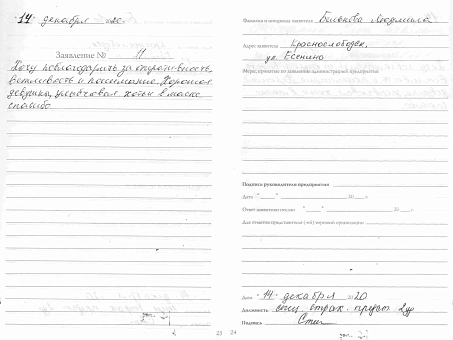 "14" декабря 20
Заявление № 11
Хочу поблагодарить за оперативность,
вежливость и понимание. Хорошая
девушка, улыбчивая хоть и в маске
спасибо
25
Фамилия и инициалы заявителя Людмила
Адрес заявителя Краснослободск,
ул. Есенина
Меры, принятые по заявлению администрацией предприятия:
Подпись руководителя предприятия
Дата " " 20 г.
Ответ заявителю послан " " 20 г.
Для отметки представителя (-ей) торговой организации
Дата "14" декабря 2020
Должность спец
Подпись
24